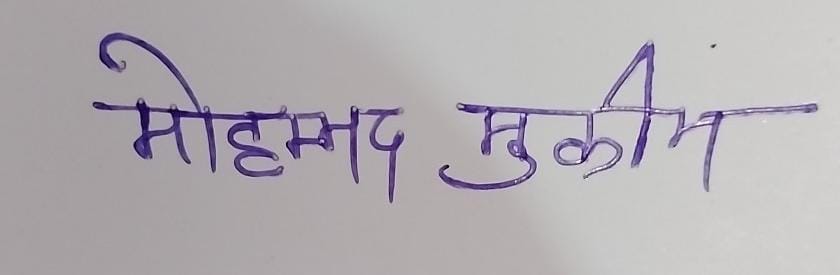 मोहम्मद मुकीम